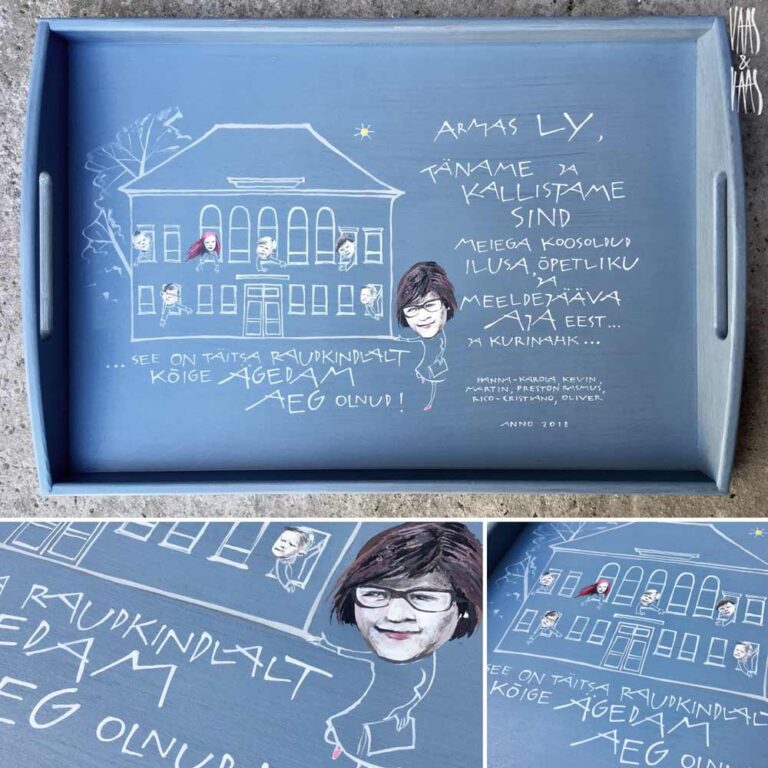 VAAS
&
VAAS
ARMAS LY,
TÄNAME JA
KALLISTAME
SIND
MEIEGA KOOSOLDUD
ILUSA, ÕPETLIKU
JA
MEELDEJÄÄVA
AJA EEST...
JA KURINAHK...
HANNA-KAROLA, KEVIN,
MARTIN, PRESTON RASMUS,
RICO-CRISTIANO, OLIVER
ANNO 2018
...SEE ON TÄITSA RAUDKINDLALT
KÕIGE ÄGEDAM
AEG OLNUD!
A RAUDKINDLALT
GEDAM
AEG OLNUD!
SEE ON TÄITSA RAUDKINDLALT
KÕIGE ÄGEDAM
AEG OLNU